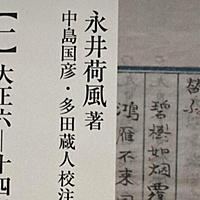 永井荷風著
中島国彦・多田蔵人校注
【一】大正六―十四
碧樹如烟覆
鴻雁不来